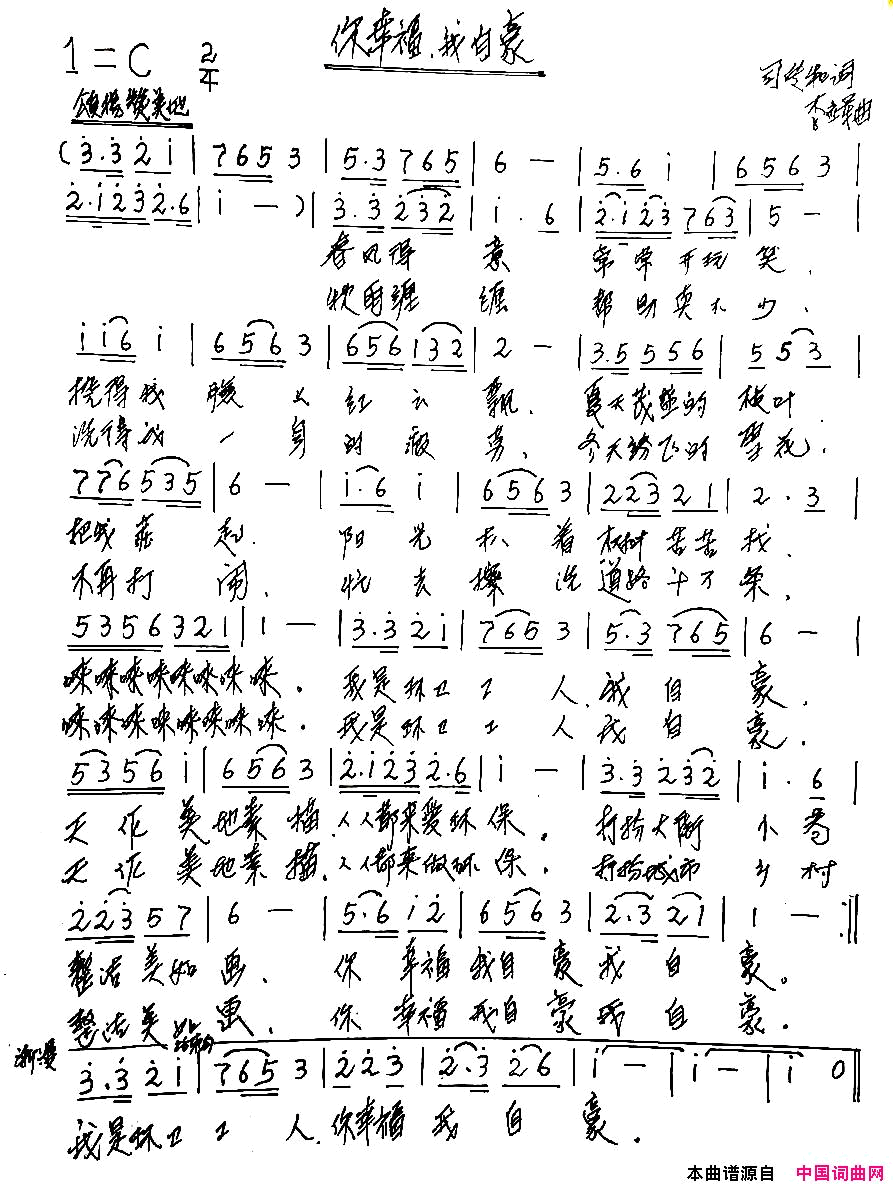 你幸福、我自豪
1=C 2/4
司传和词
颂扬赞美地
曲
(3.3 2 i | 7 6 5 3 | 5.3 7 6 5 | 6 — | 5.6 i | 6 5 6 3 |
2.i 2 3 2.6 | i — ) | 3.3 2 3 2 | i . 6 | 2.i 2 3 7 6 3 | 5 — |
春风得意 常常开玩笑、
秋雨缠缠 帮助真不少、
i i 6 i | 6 5 6 3 | 6 5 6 1 3 2 | 2 — | 3.5 5 5 6 | 5 5 3 |
挠得我腰上红云飘、夏天茂盛的枝叶
洗得我一身的疲劳、冬天纷飞的雪花、
7 7 6 5 3 5 | 6 — | i.6 i | 6 5 6 3 | 2 2 3 2 1 | 2 . 3 |
把我 起、阳光扒着树 苦苦找、
不再打闹、忙去擦洗道路 条、
5 3 5 6 3 2 1 | 1 — | 3.3 2 i | 7 6 5 3 | 5.3 7 6 5 | 6 — |
唻唻唻唻唻唻唻唻。我是环卫工人、我自豪、
唻唻唻唻唻唻唻唻。我是环卫工人我自豪。
5 3 5 6 i | 6 5 6 3 | 2.i 2 3 2.6 | i — | 3.3 2 3 2 | i . 6 |
天作美地素描、人人都来爱环保。打扮大街小巷
天作美地素描、人人都来做环保。打扮城市乡村
2 2 3 5 7 | 6 — | 5.6 i 2 | 6 5 6 3 | 2.3 2 1 | 1 — :||
整洁美如画、你幸福我自豪我自豪。
整洁美如画、你幸福我自豪我自豪。
渐慢
3.3 2 i | 7 6 5 3 | 2 2 3 | 2.3 2 6 | i — | i — | i 0 ||
我是环卫工人、你幸福我自豪。
本曲谱源自 中国词曲网